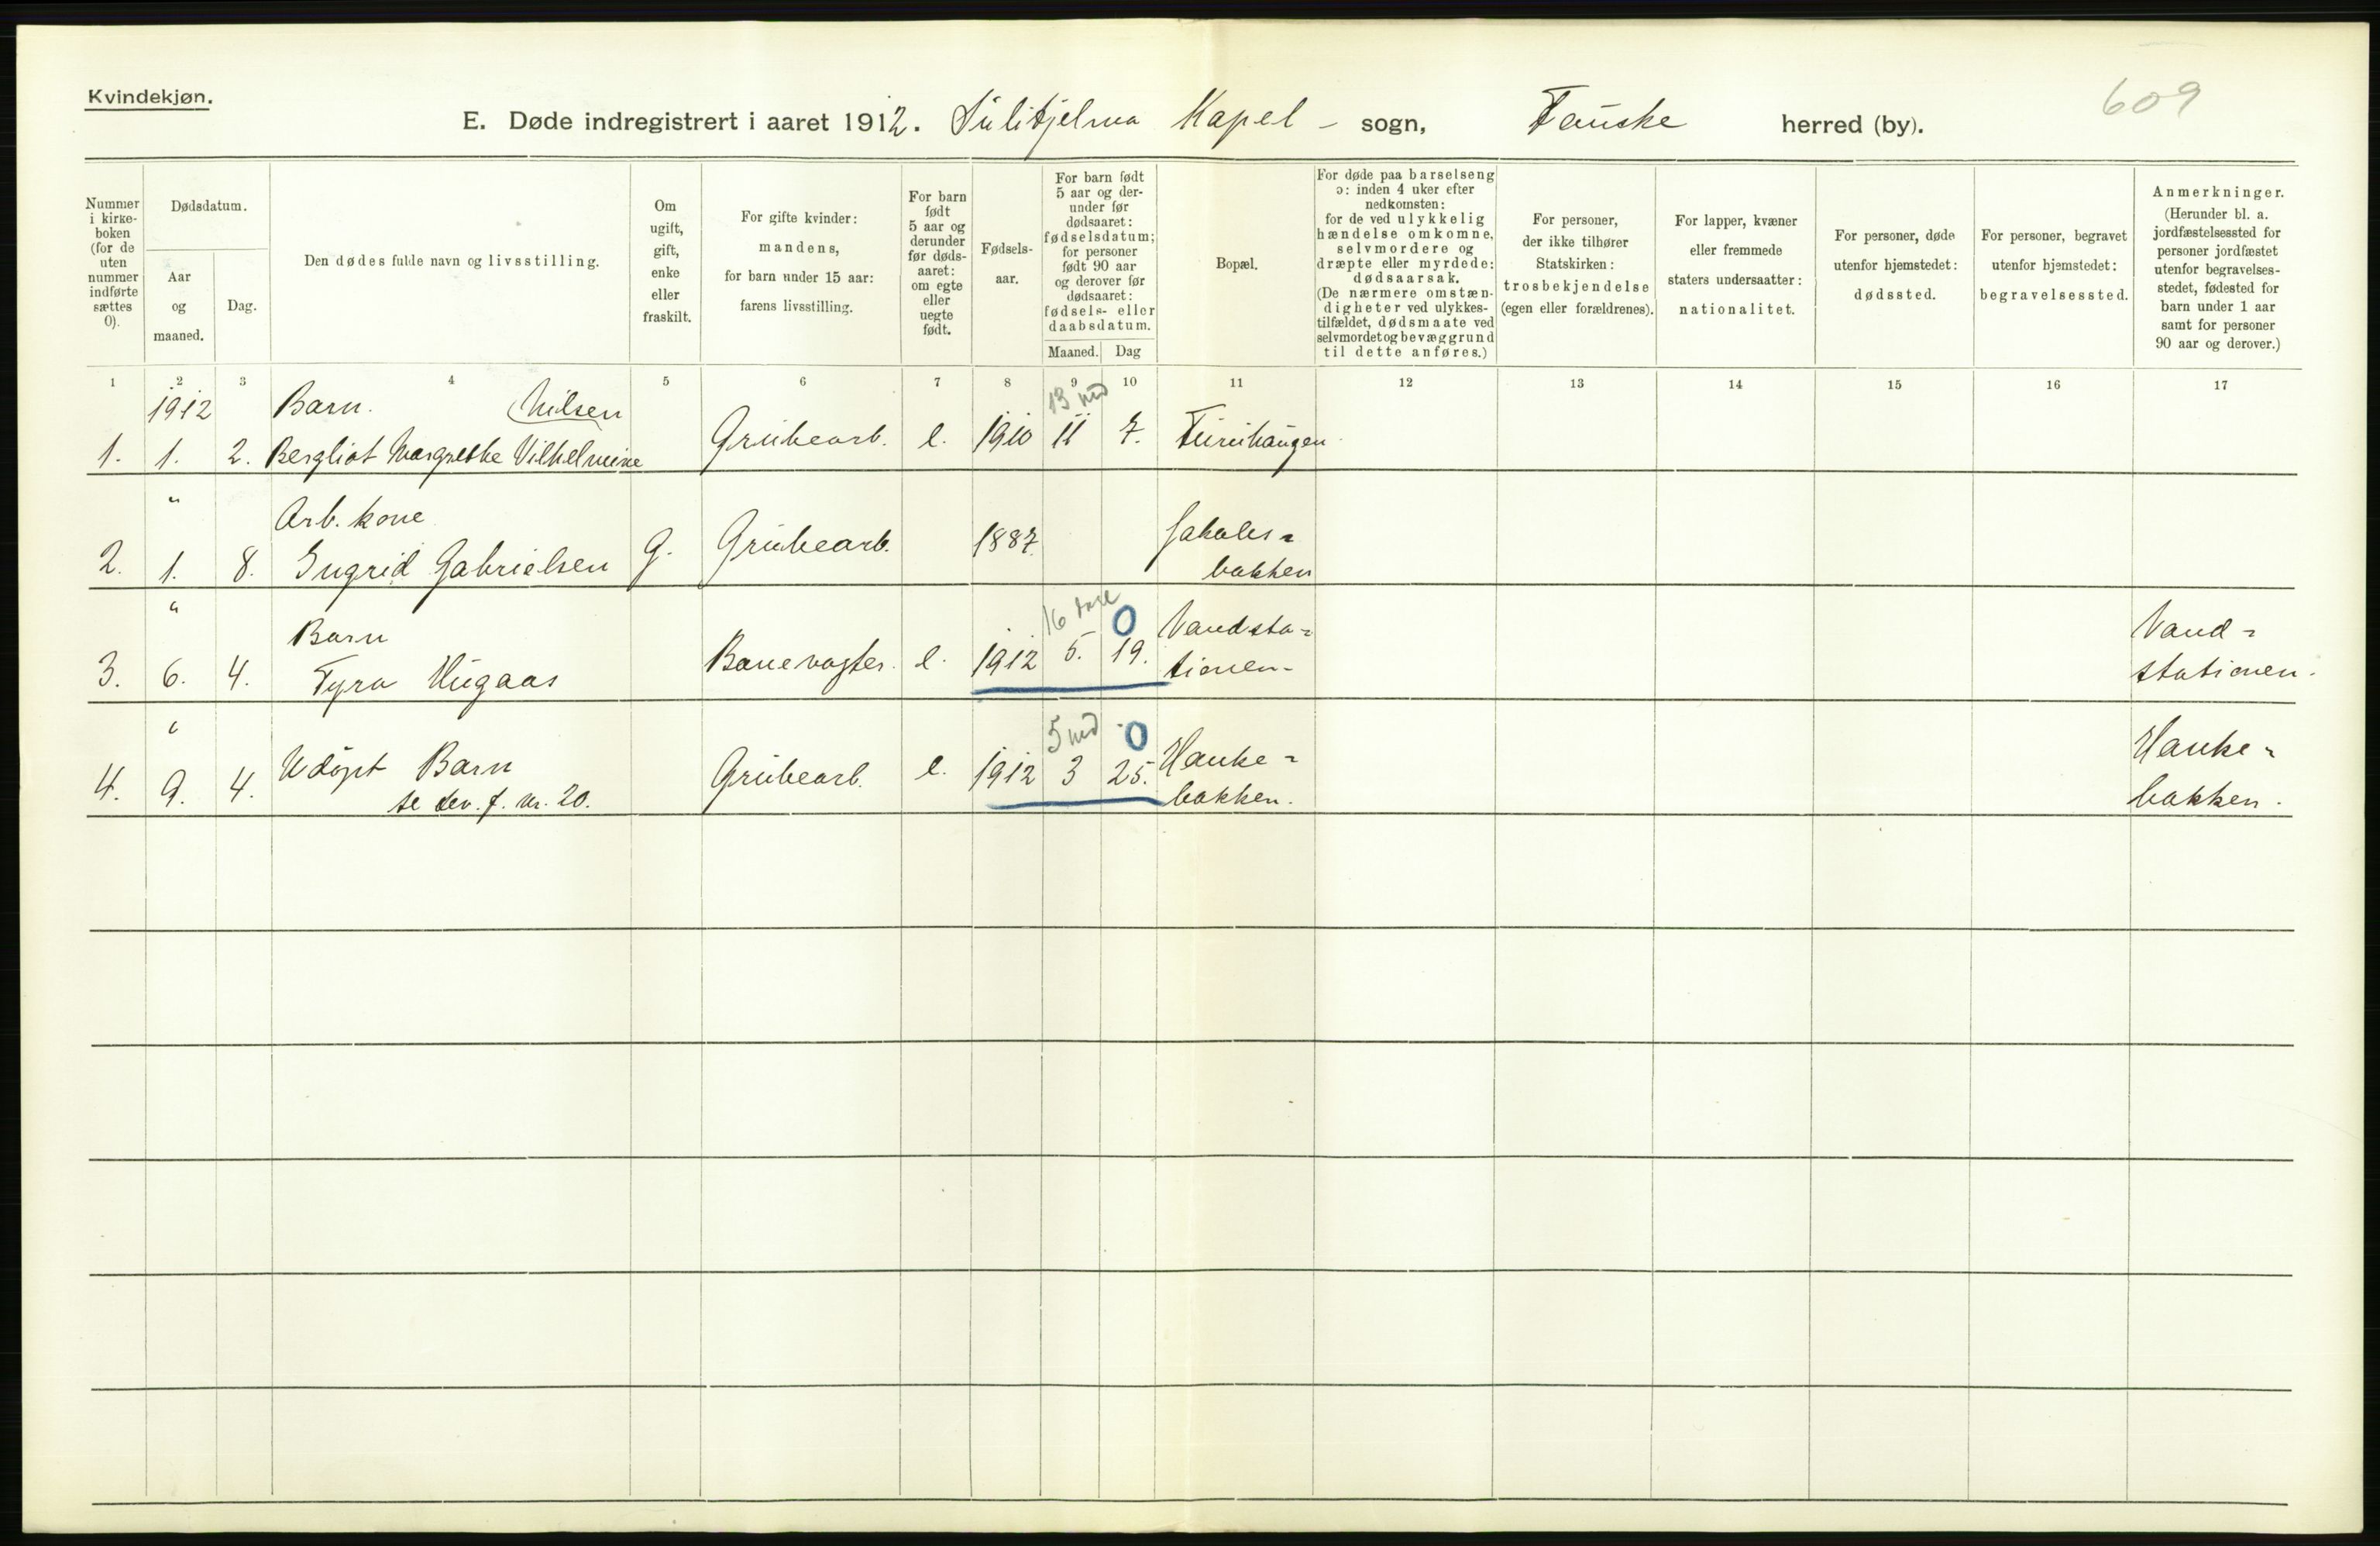 Kvindekjøn.
609
E. Døde indregistrert i aaret 1912. Sulitjelma Kapel - sogn, Fauske herred (by).
Nummer i kirke-boken (for de uten nummer indførte sættes 0).
Dødsdatum.
Aar og maaned.
Dag.
Den dødes fulde navn og livsstilling.
Om ugift, gift, enke eller fraskilt.
For gifte kvinder: mandens, for barn under 15 aar: farens livsstilling.
For barn født 5 aar og derunder før døds-aaret: om egte eller uegte født.
Fødsels-aar.
For barn født 5 aar og der-under før dødsaaret: fødselsdatum; for personer født 90 aar og derover før dødsaaret: fødsels- eller daabsdatum.
Maaned. Dag
Bopæl.
For døde paa barselseng ɔ: inden 4 uker efter nedkomsten: for de ved ulykkelig hændelse omkomne, selvmordere og dræpte eller myrdede: dødsaarsak. (De nærmere omstæn-digheter ved ulykkes-tilfældet, dødsmaate ved selvmordet og bevæggrund til dette anføres.)
For personer, der ikke tilhører Statskirken: trosbekjendelse (egen eller forældrenes).
For lapper, kvæner eller fremmede staters undersaatter: nationalitet.
For personer, døde utenfor hjemstedet: dødssted.
For personer, begravet utenfor hjemstedet: begravelsessted.
Anmerkninger. (Herunder bl. a. jordfæstelsessted for personer jordfæstet utenfor begravelses-stedet, fødested for barn under 1 aar samt for personer 90 aar og derover.)
1 2 3 4 5 6 7 8 9 10 11 12 13 14 15 16 17
1912 Barn. Nilsen 13 md
1. 1. 2. Bergliot Margrethe Vilhelmine Grubearb. e. 1910 11 7. Furuhaugen
" Arb. kone
2. 1. 8. Ingrid Gabrielsen G. Grubearb. 1887 Jakobs-
bakken
" Barn 16 0 Vandsta- Vand-
3. 6. 4. Tyra Hugaas Banevogter. e. 1912 5. 19. tionen- stationen.
" 5 md 0
4. 9. 4. Udöpt Barn Grubearb. e. 1912 3 25. Hanke- Hanke-
se lev. f. nr. 20. bakken. bakken.